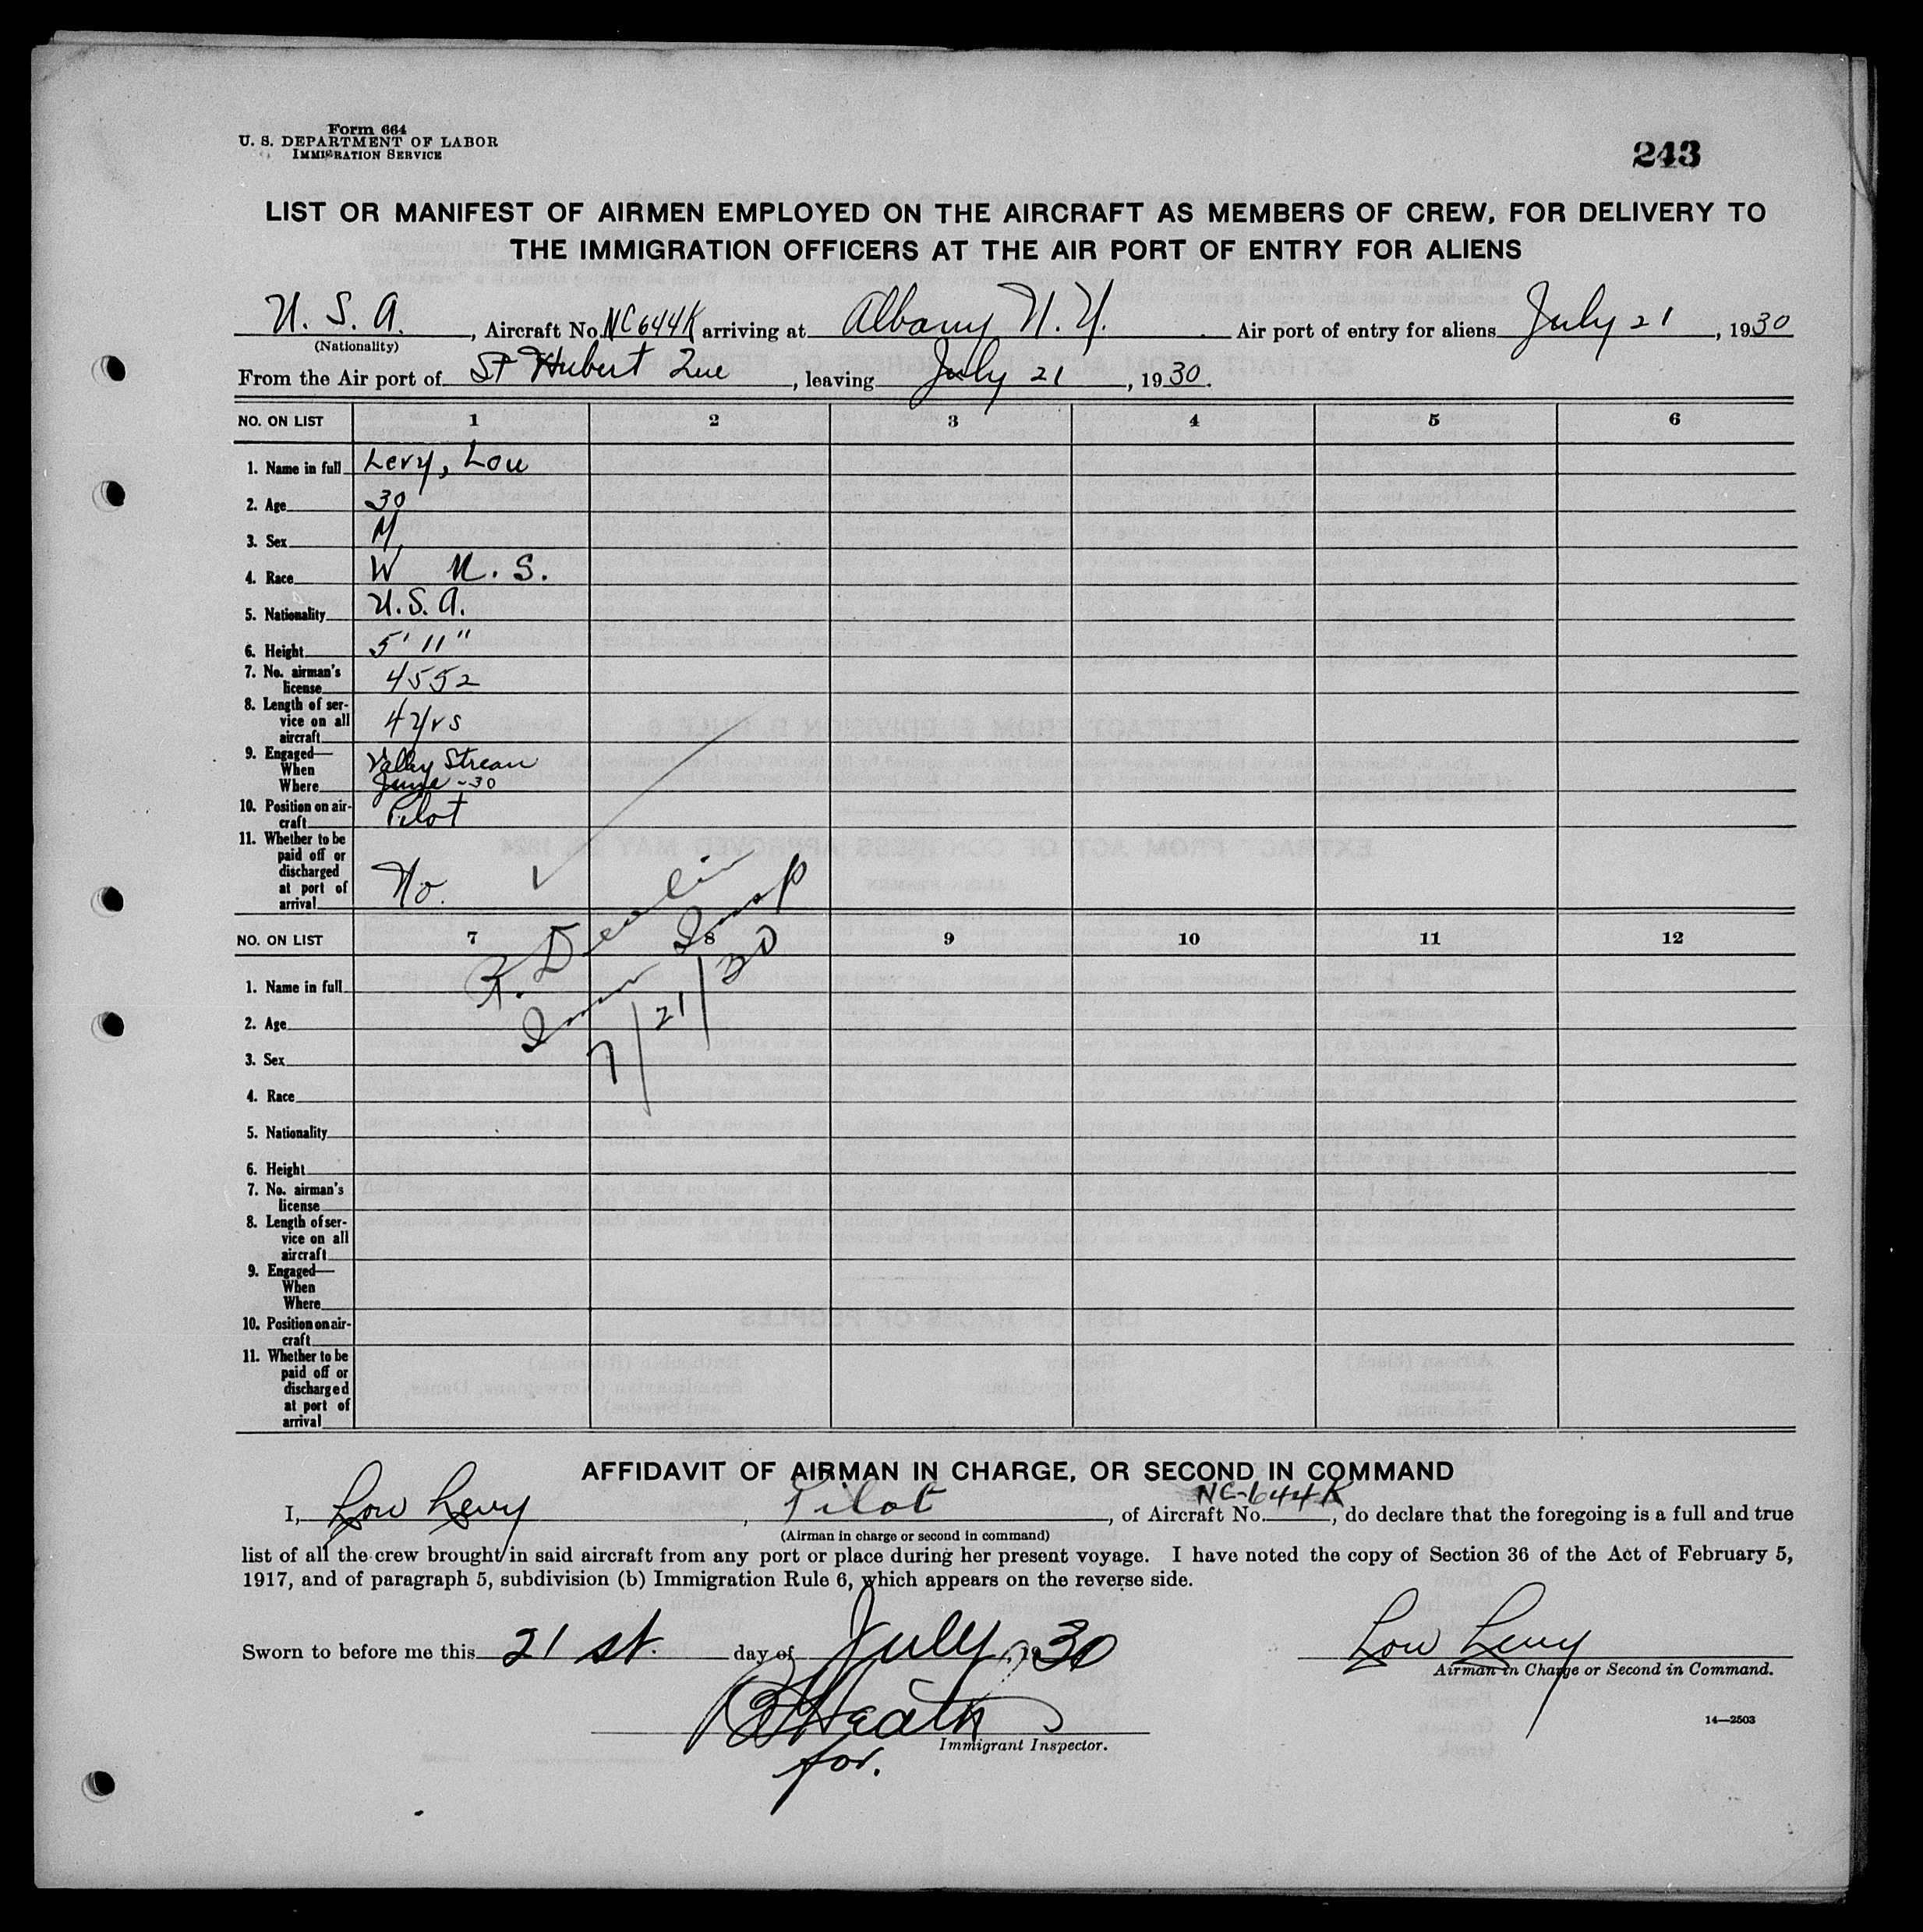 Form 664
U. S. DEPARTMENT OF LABOR
IMMIGRATION SERVICE
243
LIST OR MANIFEST OF AIRMEN EMPLOYED ON THE AIRCRAFT AS MEMBERS OF CREW, FOR DELIVERY TO
THE IMMIGRATION OFFICERS AT THE AIR PORT OF ENTRY FOR ALIENS
U. S. A., Aircraft No. NC644K arriving at Albany N. Y. Air port of entry for aliens July 21, 1930
(Nationality)
From the Air port of St Hubert Que, leaving July 21, 1930.
NO. ON LIST 1 2 3 4 5 6
1. Name in full Levy, Lou
2. Age 30
3. Sex M
4. Race W U. S.
5. Nationality U.S.A.
6. Height 5' 11"
7. No. airman's
license 4552
8. Length of ser-
vice on all
aircraft 4 yrs
9. Engaged—
When Valley Stream
Where June -30
10. Position on air-
craft Pilot
11. Whether to be
paid off or
discharged
at port of
arrival No.
R. Devlin
Imm Insp
7/21/30
NO. ON LIST 7 8 9 10 11 12
1. Name in full
2. Age
3. Sex
4. Race
5. Nationality
6. Height
7. No. airman's
license
8. Length of ser-
vice on all
aircraft
9. Engaged—
When
Where
10. Position on air-
craft
11. Whether to be
paid off or
discharged
at port of
arrival
AFFIDAVIT OF AIRMAN IN CHARGE, OR SECOND IN COMMAND
I, Lou Levy, Pilot, of Aircraft No. NC-644K, do declare that the foregoing is a full and true
(Airman in charge or second in command)
list of all the crew brought in said aircraft from any port or place during her present voyage. I have noted the copy of Section 36 of the Act of February 5,
1917, and of paragraph 5, subdivision (b) Immigration Rule 6, which appears on the reverse side.
Sworn to before me this 21 st. day of July, 1930
Lou Levy
Airman in Charge or Second in Command.
Heath
Immigrant Inspector.
for.
14—2503